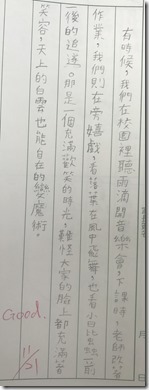 有時候，我們在校園裡聽雨滴開音樂會，下課時，老師改著
作業，我們則在旁嬉戲，看落葉在風中飛舞，也看小白比絲一前一
後的追逐。那是一個充滿歡笑的時光，難怪大家的臉上都充滿著
笑容，天上的白雲也能自在的變魔術。
Good.
11/21